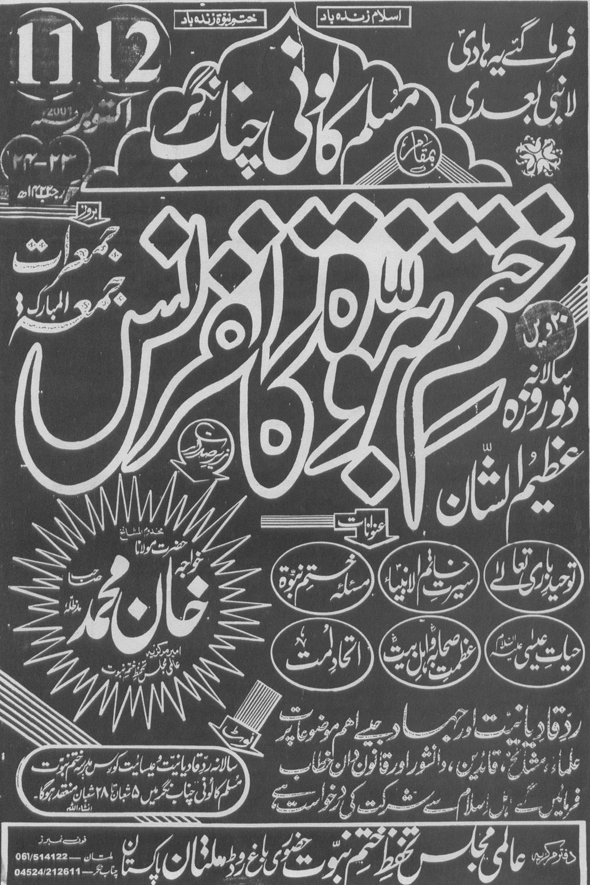 اسلام زندہ باد
ختم نبوۃ زندہ باد
فرما گئے یہ ہادی
لا نبی بعدی
11 12
اکتوبر 2001ء
۲۳-۲۴
رجب ۱۴۲۲ھ
بمقام
مسلم کالونی چناب نگر
بروز
جمعرات
جمعۃ المبارک
ختم نبوۃ کانفرنس
۲۰ ویں
سالانہ
دو روزہ
عظیم الشان
زیر صدارت
مخدوم المشائخ
حضرت مولانا
خواجہ
خان محمد
صاحب
مدظلہ
امیر مرکزیہ
عالمی مجلس تحفظ ختم نبوت
عنوانات
توحید باری تعالےٰ
سیرت خاتم الانبیاء
مسئلہ ختم نبوۃ
حیات عیسیٰ علیہ السلام
عظمت صحابہ و اہل بیت
اتحاد امت
رد قادیانیت اور جہاد جیسے اہم موضوعات پر
علماء، مشائخ، قائدین، دانشور اور قانون دان خطاب
فرمائیں گے اہل اسلام سے شرکت کی درخواست ہے
نوٹ
سالانہ رد قادیانیت و عیسائیت کورس مدرسہ ختم نبوت
مسلم کالونی چناب نگر میں ۵ شعبان تا ۲۸ شعبان منعقد ہوگا۔
انشاء اللہ
دفتر مرکزیہ عالمی مجلس تحفظ ختم نبوت حضوری باغ روڈ ملتان پاکستان
فون نمبرز
ملتان — 061/514122
چناب نگر — 04524/212611